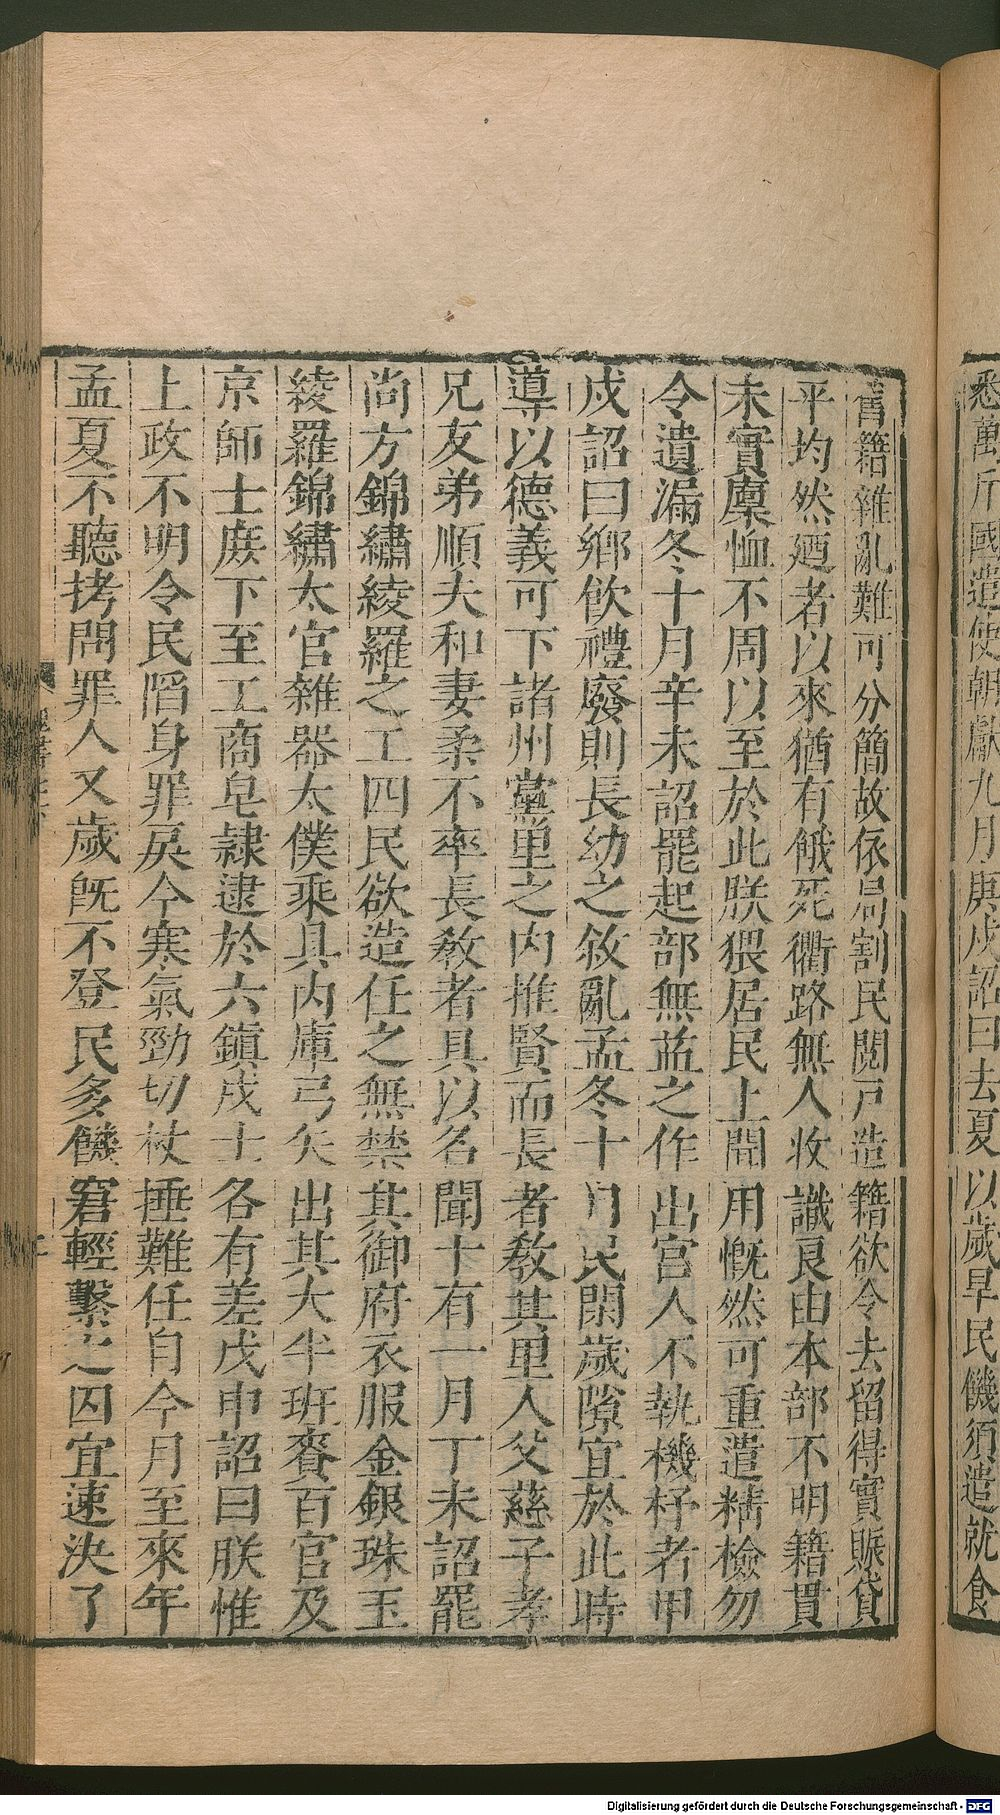 悉萬斤國遣使朝獻九月庚戌詔曰去夏以歲旱民饑須遣就食
舊籍雜亂難可分簡故依局割民閱戸造籍欲令去留得實賑貸
平均然廼者以來猶有餓死衢路無人收識良由本部不明籍貫
未實廩恤不周以至於此朕猥居民上聞用慨然可重遣精檢勿
令遺漏冬十月辛未詔罷起部無益之作出宮人不執機杼者甲
戌詔曰鄉飲禮廢則長幼之敘亂孟冬十月民閑歲隙宜於此時
導以德義可下諸州黨里之内推賢而長者敎其里人父慈子孝
兄友弟順夫和妻柔不率長敎者具以名聞十有一月丁未詔罷
尚方錦繡綾羅之工四民欲造任之無禁其御府衣服金銀珠玉
綾羅錦繡太官雜器太僕乘具内庫弓矢出其大半班賚百官及
京師士庶下至工商皂隸逮於六鎭戍士各有差戊申詔曰朕惟
上政不明令民陷身罪戾今寒氣勁切杖捶難任自今月至來年
孟夏不聽拷問罪人又歲旣不登民多饑窘輕繫之囚宜速決了
Digitalisierung gefördert durch die Deutsche Forschungsgemeinschaft - DFG